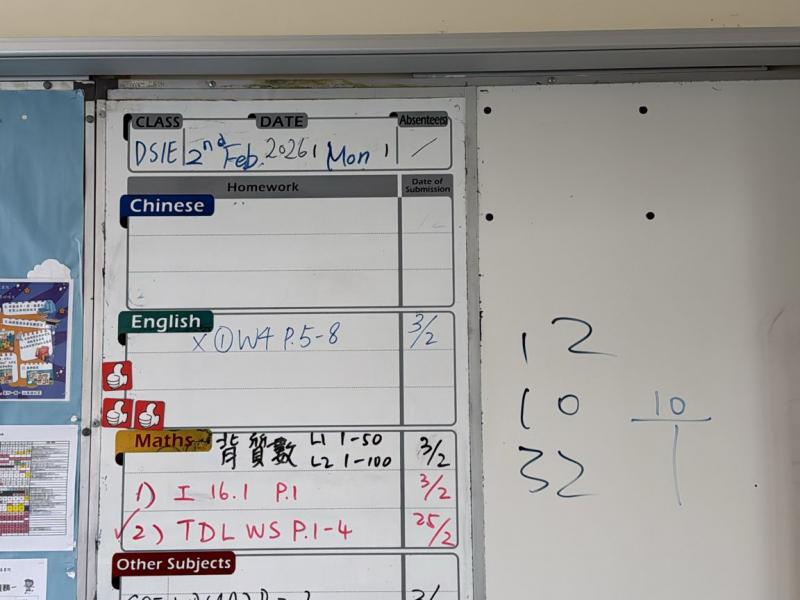 CLASS DATE Absentees
DSIE 2nd Feb. 2026, Mon, /
Homework Date of Submission
Chinese
English
X ① W4 P.5-8 3/2
Maths 背質數 L1 1-50 3/2
L2 1-100
1) I 16.1 P.1 3/2
✓2) TDL WS P.1-4 25/2
Other Subjects
12
10 10
32 1